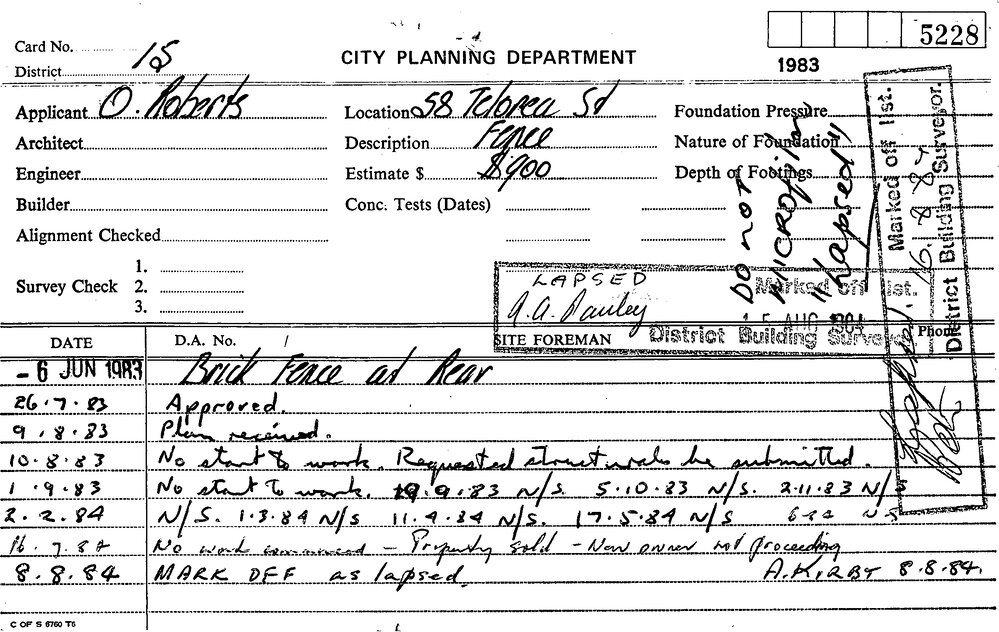 5228
Card No.
15
CITY PLANNING DEPARTMENT
1983
District
Applicant O. Roberts
Location 58 Telopea St
Foundation Pressure
Architect
Description Fence
Nature of Foundation
Engineer
Estimate $ $900
Depth of Footings
Builder
Conc. Tests (Dates)
Alignment Checked
Survey Check
1.
2.
3.
DO NOT
MICROFILM
"Lapsed"
Marked off list.
16.8.84
District Building Surveyor.
LAPSED
Marked off list.
15 AUG 1984
District Building Surveyor
SITE FOREMAN
Phone
DATE
D.A. No.
- 6 JUN 1983 Brick Fence at Rear
26.7.83 Approved.
9.8.83 Plan received.
10.8.83 No start to work. Requested structurals be submitted.
1.9.83 No start to work. 19.9.83 N/S. 5.10.83 N/S. 2.11.83 N/S
2.2.84 N/S. 1.3.84 N/S 11.4.84 N/S. 17.5.84 N/S
16.7.84 No work commenced - Property sold - New owner not proceeding
8.8.84 MARK OFF as lapsed. A. KIRBY 8.8.84.
C OF S 6760 T6